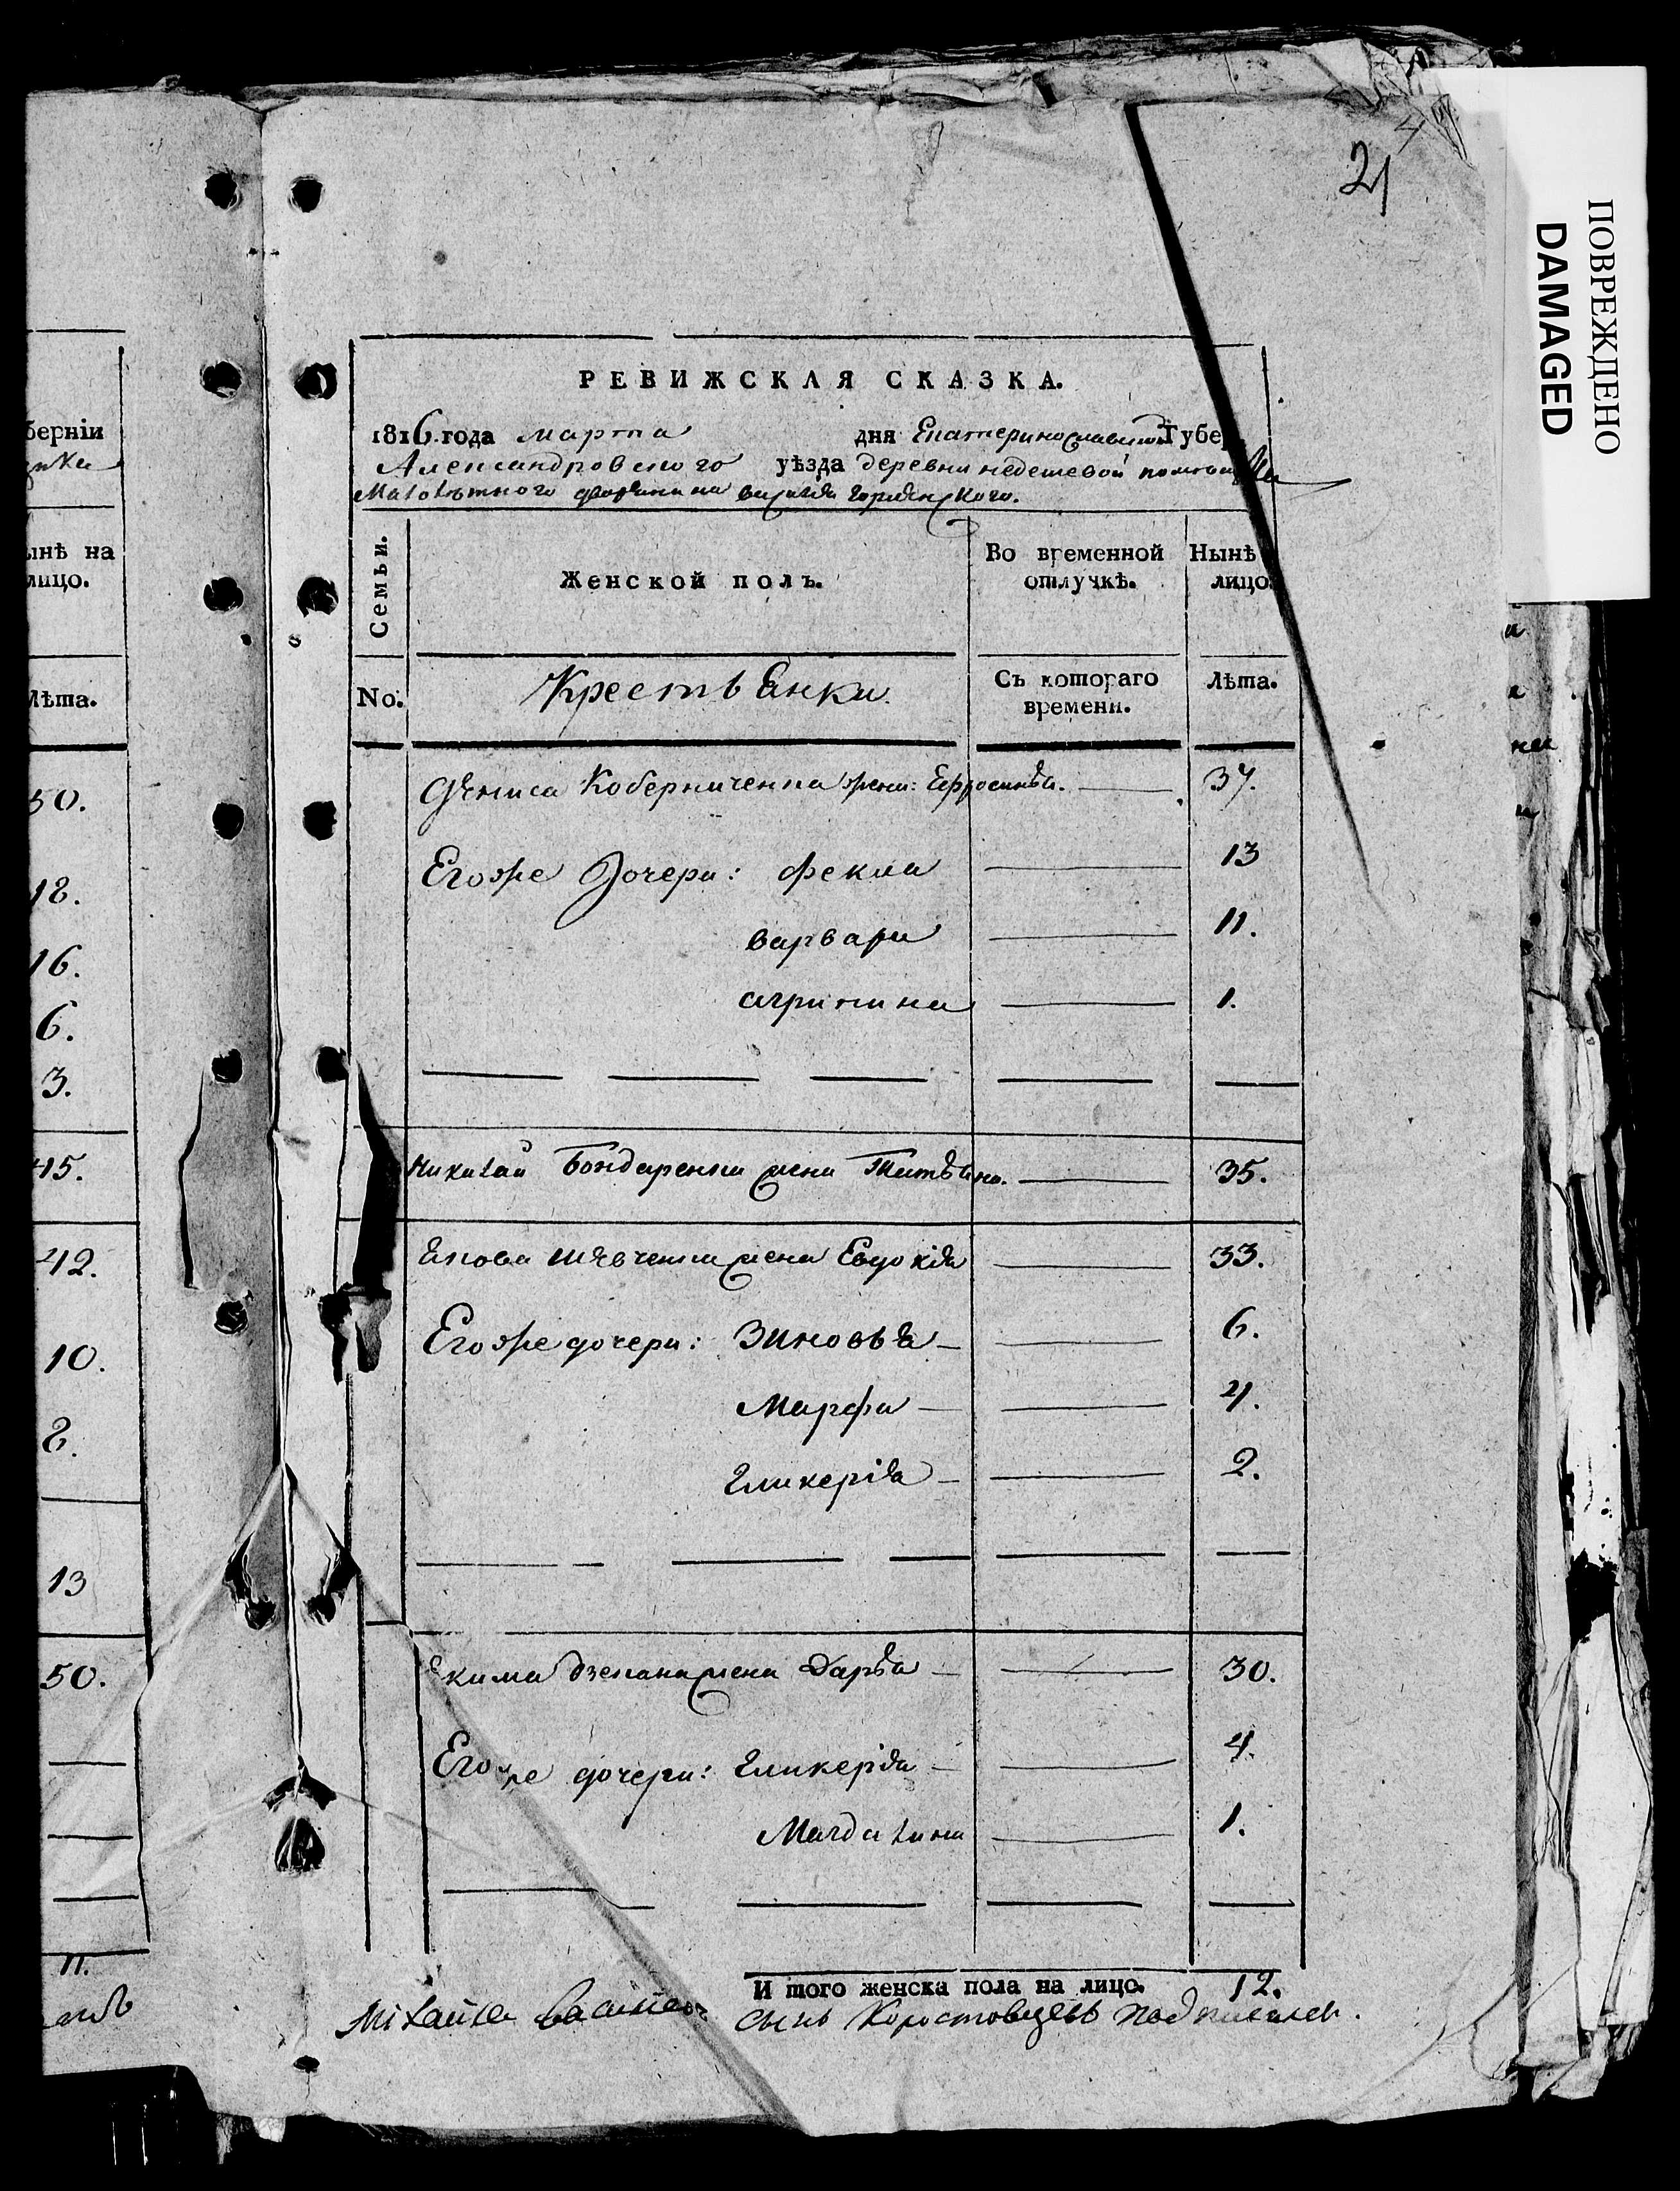 21
ПОВРЕЖДЕНО
DAMAGED
РЕВИЖСКАЯ СКАЗКА.
1816 года марта дня Екатеринославской Губе
Александровского уѣзда деревни недешевой
Малолѣтного дворянина
Семьи.
Женской полъ.
Во временной отлучкѣ.
Нынѣ
лицо.
No.
Крестьянки.
Съ котораго времени.
Лѣта.
Дениса Коберниченка жена: Ефросинья. 37.
Егоже Дочери: фекла 13
варвара 11.
агрипина 1.
Николая Бондаренка жена Татьяна. 35.
Якова Шевченка жена Евдокія 33.
Егоже дочери: Зиновья 6.
Марфа 4.
Гликерія 2.
кима жена Дарья 30.
Егоже дочери: Гликерія 4.
Магдалина 1.
И того женска пола на лицо. 12.
сынъ Коростовцевъ
берніи
ынѣ на
лицо.
Лѣта.
50.
18.
16.
6.
3.
45.
42.
10.
8.
13
50.
11.